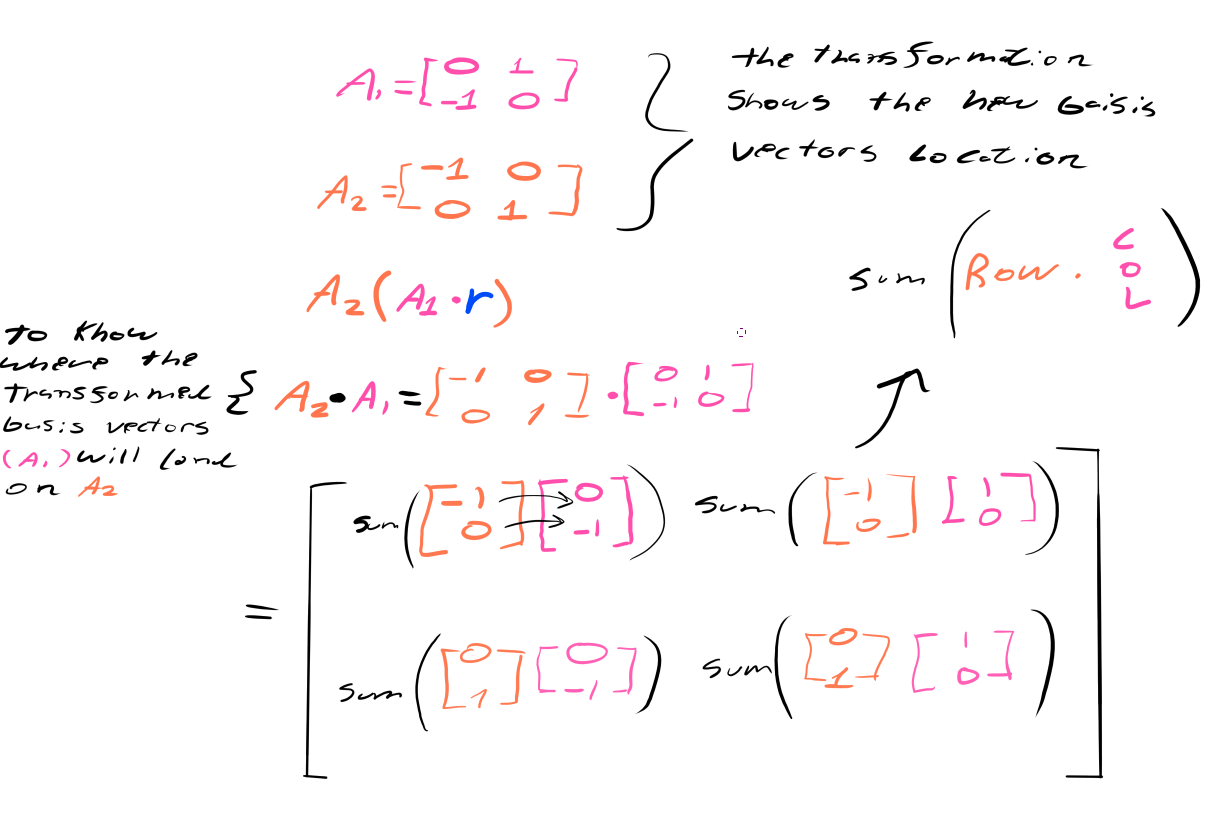 A₁ = [0 1
-1 0]
the transformation
shows the new basis
vectors location
A₂ = [-1 0
0 1]
sum (Row . C
O
L)
A₂(A₁·r)
to know
where the
transformed
basis vectors
(A₁) will land
on A₂
{ A₂·A₁ = [-1 0 · [0 1
0 1] -1 0]
= [ sum([-1 0] [0 -1]) sum([-1 0] [1 0])
sum([0 1] [0 -1]) sum([0 1] [1 0]) ]